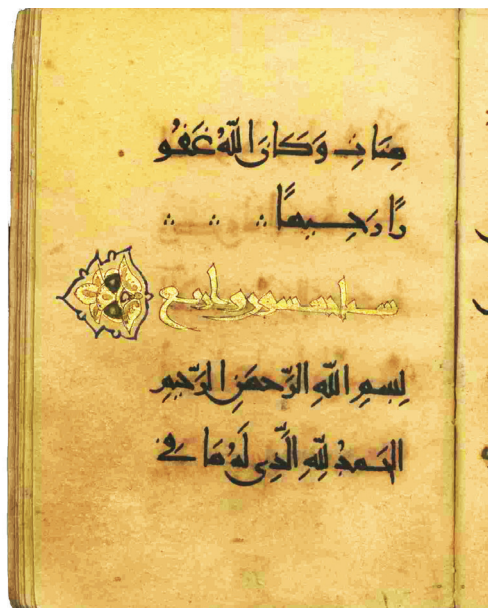 مِنَاتِ وَكَانَ اللَّهُ غَفُو
رًا رَحِيمًا
سبا خمسون واربع
بِسمِ اللَّهِ الرَّحمَنِ الرَّحِيمِ
الحَمدُ لِلَّهِ الَّذِى لَهُ مَا فِى